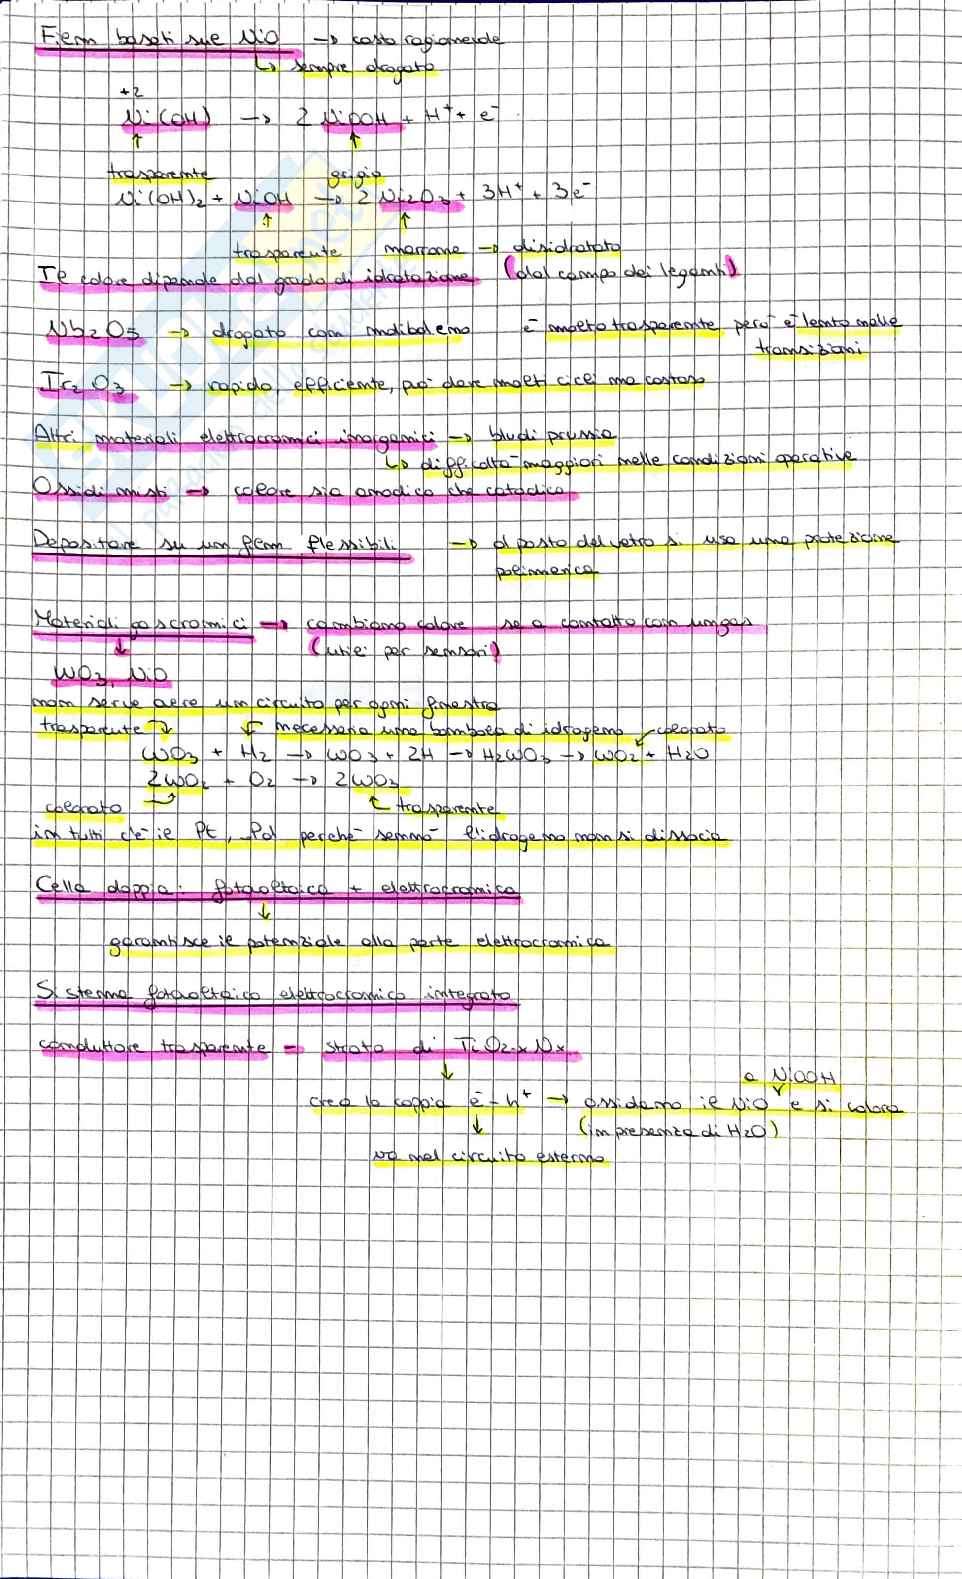 Film basati sul NiO → costo ragionevole
↳ sempre drogato
+2
Ni(OH) → 2 NiOOH + H⁺ + e⁻
↑ ↑
trasparente grigio
Ni(OH)₂ + NiOH → 2 Ni₂O₃ + 3H⁺ + 3e⁻
↑ ↑
trasparente marrone → disidratato
Il colore dipende dal grado di idratazione (dal campo dei leganti)
Nb₂O₅ → drogato con molibdeno è molto trasparente però è lento nelle
transizioni
Ir₂O₃ → rapido, efficiente, può dare molti cicli ma costoso
Altri materiali elettrocromici inorganici → blu di prussia
↳ difficoltà maggiori nelle condizioni operative
Ossidi misti → colore sia anodico che catodico
Depositare su un film flessibili → al posto del vetro si usa una protezione
polimerica
Materiali gascromici → cambiano colore se a contatto con un gas
↓ (utili per sensori)
WO₃, NiO
non serve avere un circuito per ogni finestra
trasparente ↙ necessaria una bombola di idrogeno colorato
WO₃ + H₂ → WO₃ + 2H → H₂WO₃ → WO₂ + H₂O
2WO₂ + O₂ → 2WO₃
colorato trasparente
in tutti c'è il Pt, Pd perché sennò l'idrogeno non si dissocia
Cella doppia: fotovoltaica + elettrocromica
↓
garantisce il potenziale alla parte elettrocromica
Sistema fotovoltaico elettrocromico integrato
conduttore trasparente → strato di TiO₂₋ₓNₓ
↓ a NiOOH
crea la coppia e⁻ - h⁺ → ossidano il NiO e si colora
↓ (in presenza di H₂O)
va nel circuito esterno